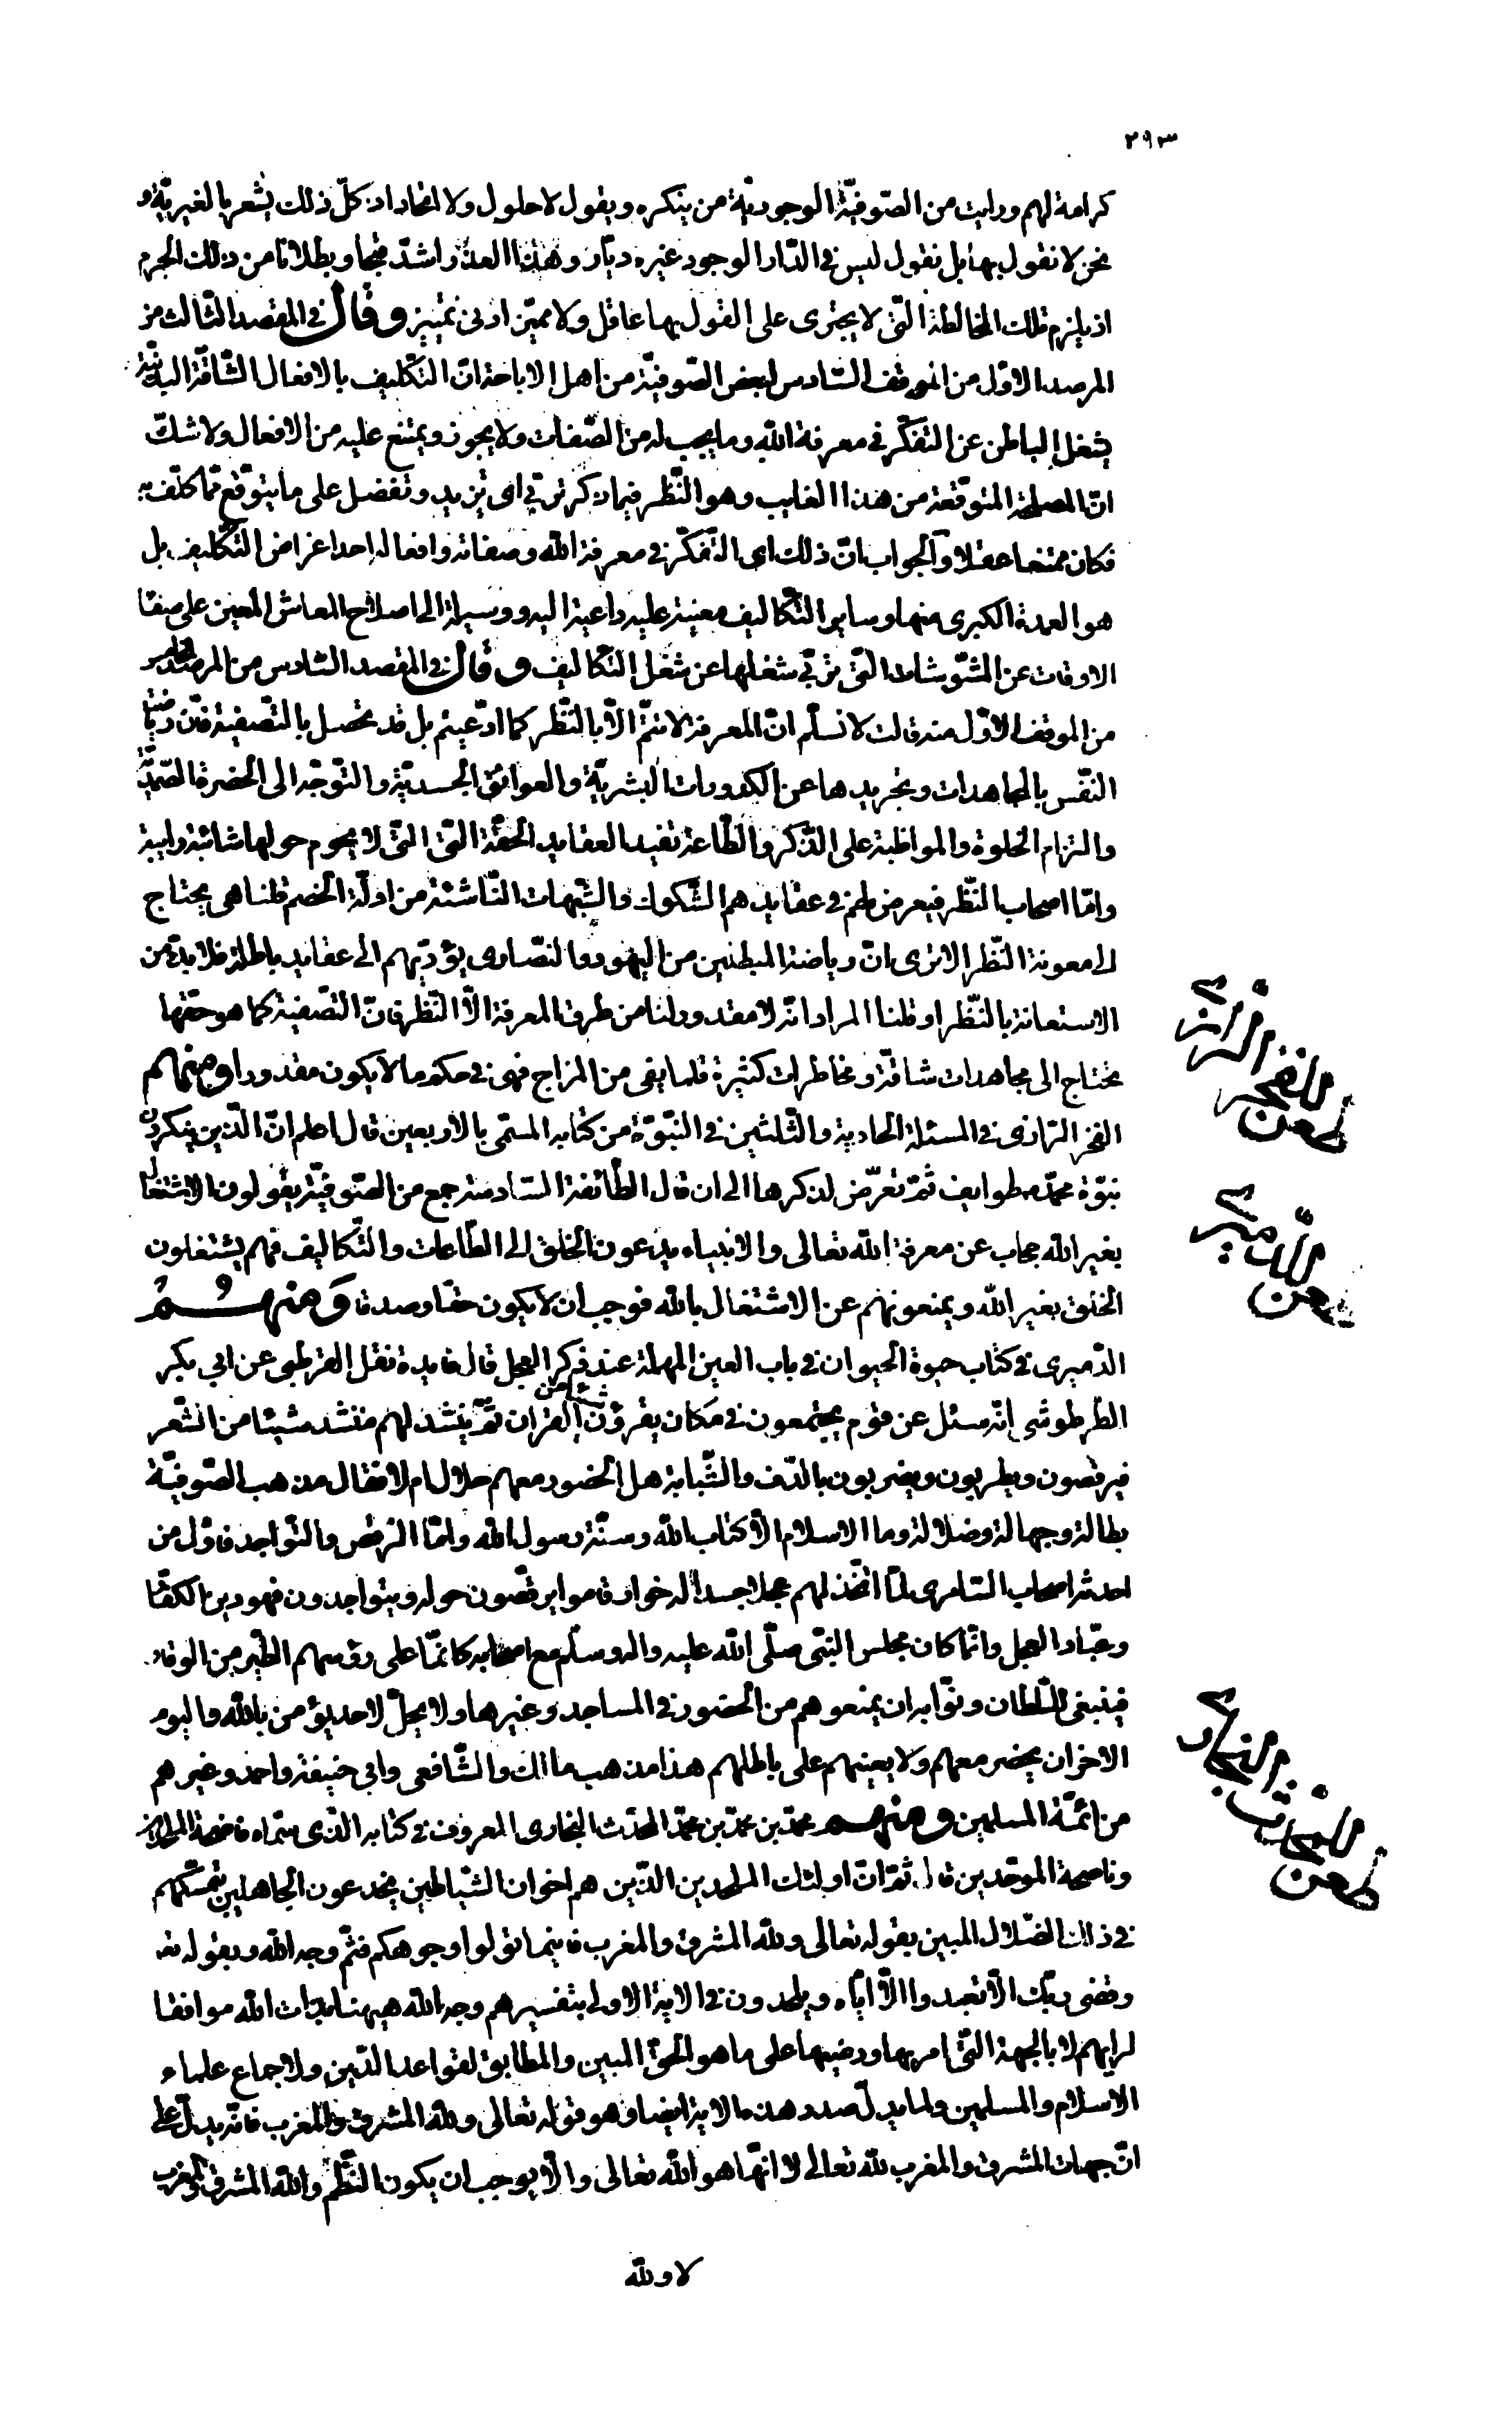 ٢٩٣
كرامة لهم ورايت من الصّوفيّة الوجوديّة من ينكره ويقول لا حلول ولا اتحاد اذ كلّ ذلك يشعر بالغيريّة و
نحن لا نقول بها بل نقول ليس فى الدّار الوجود غيره ديّار وهذا العذر اشدّ قبحا وبطلانا من ذلك الجرم
اذ يلزم تلك المخالطة الّتى لا يجترى على القول بها عاقل ولا مميّز ادنى تمييز وقال فى المقصد الثّالث من
المرصد الاوّل من الموقف السّادس لبعض الصّوفيّة من اهل الاباحة انّ التّكليف بالافعال الشّاقّة البدنيّة
يشغل الباطن عن التّفكّر فى معرفة الله وما يجب له من الصّفات ولا يجوز ويمتنع عليه من الافعال ولا شكّ
انّ المصلحة المتوقّعة من هذا الغايب وهو النّظر فيما ذكر تربى اى تزيد وتفضل على ما يتوقّع ممّا كلّف به
فكان ممتنعا عقلا والجواب انّ ذلك اى التّفكّر فى معرفة الله وصفاته وافعاله احد اغراض التّكليف بل
هو العمدة الكبرى منها وساير التّكاليف معينة عليه داعية اليه ووسيلة الى اصلاح المعاش المعين على صفا
الاوقات عن المشوّشات الّتى تربى شغلها عن شغل التّكاليف وقال فى المقصد السّادس من المرصد الخامس
من الموقف الاوّل منه قالت لا نسلّم انّ المعرفة لا تتمّ الّا بالنّظر كما ادّعيتم بل قد تحصل بالتّصفية فانّ رياضة
النّفس بالمجاهدات وتجريدها عن الكدورات البشريّة والعوائق الجسديّة والتّوجّه الى الحضرة الصّمديّة
والتزام الخلوة والمواظبة على الذّكر والطّاعة تفيد العقايد الحقّة الّتى الّتى لا يحوم حولها شائبة رايبة
وامّا اصحاب النّظر فيعرض لهم فى عقايدهم الشّكوك والشّبهات النّاشئة من ادلّة الخصم قلنا هى يحتاج
الى معونة النّظر الا ترى انّ رياضة المبطلين من اليهود والنّصارى يؤدّيهم الى عقايد باطلة فلا بدّ من
الاستعانة بالنّظر او قلنا المراد انّه لا مقدور لنا من طرق المعرفة الّا النّظر فانّ التّصفية كما هو حقّها
يحتاج الى مجاهدات شاقّة ومخاطرات كثيرة قلما يفى من المزاج فهى فى حكم ما لا يكون مقدورا ومنهم
الفخر الرّازى فى المسئلة الحادية والثّلثين فى النّبوّة من كتابه المسمّى بالاربعين قال اعلم انّ الّذين ينكرون
نبوّة محمّد طوايف ثمّ تعرّض لذكرها الى ان قال الطّائفة السّادسة جمع من الصّوفيّة يقولون الاشتغال
بغير الله حجاب عن معرفة الله تعالى والانبياء يدعون الخلق الى الطّاعات والتّكاليف فهم يشتغلون
الخلق بغير الله ويمنعونهم عن الاشتغال بالله فوجب ان لا يكون حقّا وصدقا ومنهم
الدّميرى فى كتاب حيوة الحيوان فى باب العين المهملة عند ذكر العجل قال فايدة نقل القرطبى عن ابى بكر
الطّرطوشى انّه سئل عن قوم يجتمعون فى مكان يقرؤن شيئا من القران ثمّ ينشد لهم منشد شيئا من الشّعر
فيرقصون ويطربون ويضربون بالدّف والشّبابة هل الحضور معهم حلال ام لا فقال مذهب الصّوفيّة
بطالة وجهالة وضلالة وما الاسلام الّا كتاب الله وسنّة رسول الله وامّا الرّقص والتّواجد فاوّل من
احدثه اصحاب السّامرى لمّا اتّخذ لهم عجلا جسدا له خوار قاموا يرقصون حوله ويتواجدون فهو دين الكفّا
وعبّاد العجل وانّما كان مجلس النبىّ صلّى الله عليه واله وسلّم مع اصحابه كانّما على رؤسهم الطّير من الوقار
فينبغى للسّلطان ونوّابه ان يمنعوهم من الحضور فى المساجد وغيرها ولا يحلّ لاحد يؤمن بالله واليوم
الاخر ان يحضر معهم ولا يعينهم على باطلهم هذا مذهب مالك والشّافعى وابى حنيفة واحمد وغيرهم
من ائمّة المسلمين ومنهم محمّد بن محمّد بن محمّد المحدّث البخارى المعروف فى كتابه الّذى سمّاه فاضحة الملحدين
وناصحة الموحّدين قال ثمّ انّ اولئك الملحدين الّذين هم اخوان الشّياطين يخدعون الجاهلين بتمسّكهم
فى ذلك الضّلال المبين بقوله تعالى ولله المشرق والمغرب فاينما تولوا وجوهكم فثمّ وجه الله وبقوله تعـ
وقضى ربّك الّا تعبدوا الّا ايّاه ويلحدون فى الاية الاولى بتفسيرهم وجه الله هيهنا بذات الله موافقا
لرايهم لا بالجهة الّتى امر بها ورضيها على ما هو الحقّ المبين والمطابق لقواعد الدّين ولاجماع علماء
الاسلام والمسلمين ولما يدلّ صدر هذه الاية ايضا وهو قوله تعالى ولله المشرق والمغرب فانّه يدلّ على
انّ جهات المشرق والمغرب لله تعالى لا انّها هو الله تعالى والّا يوجب ان يكون النّظم والله المشرق والمغرب
لا ولله
طعن الفخر الرازى
طعن الدّميرى
طعن المحدّث البخارى